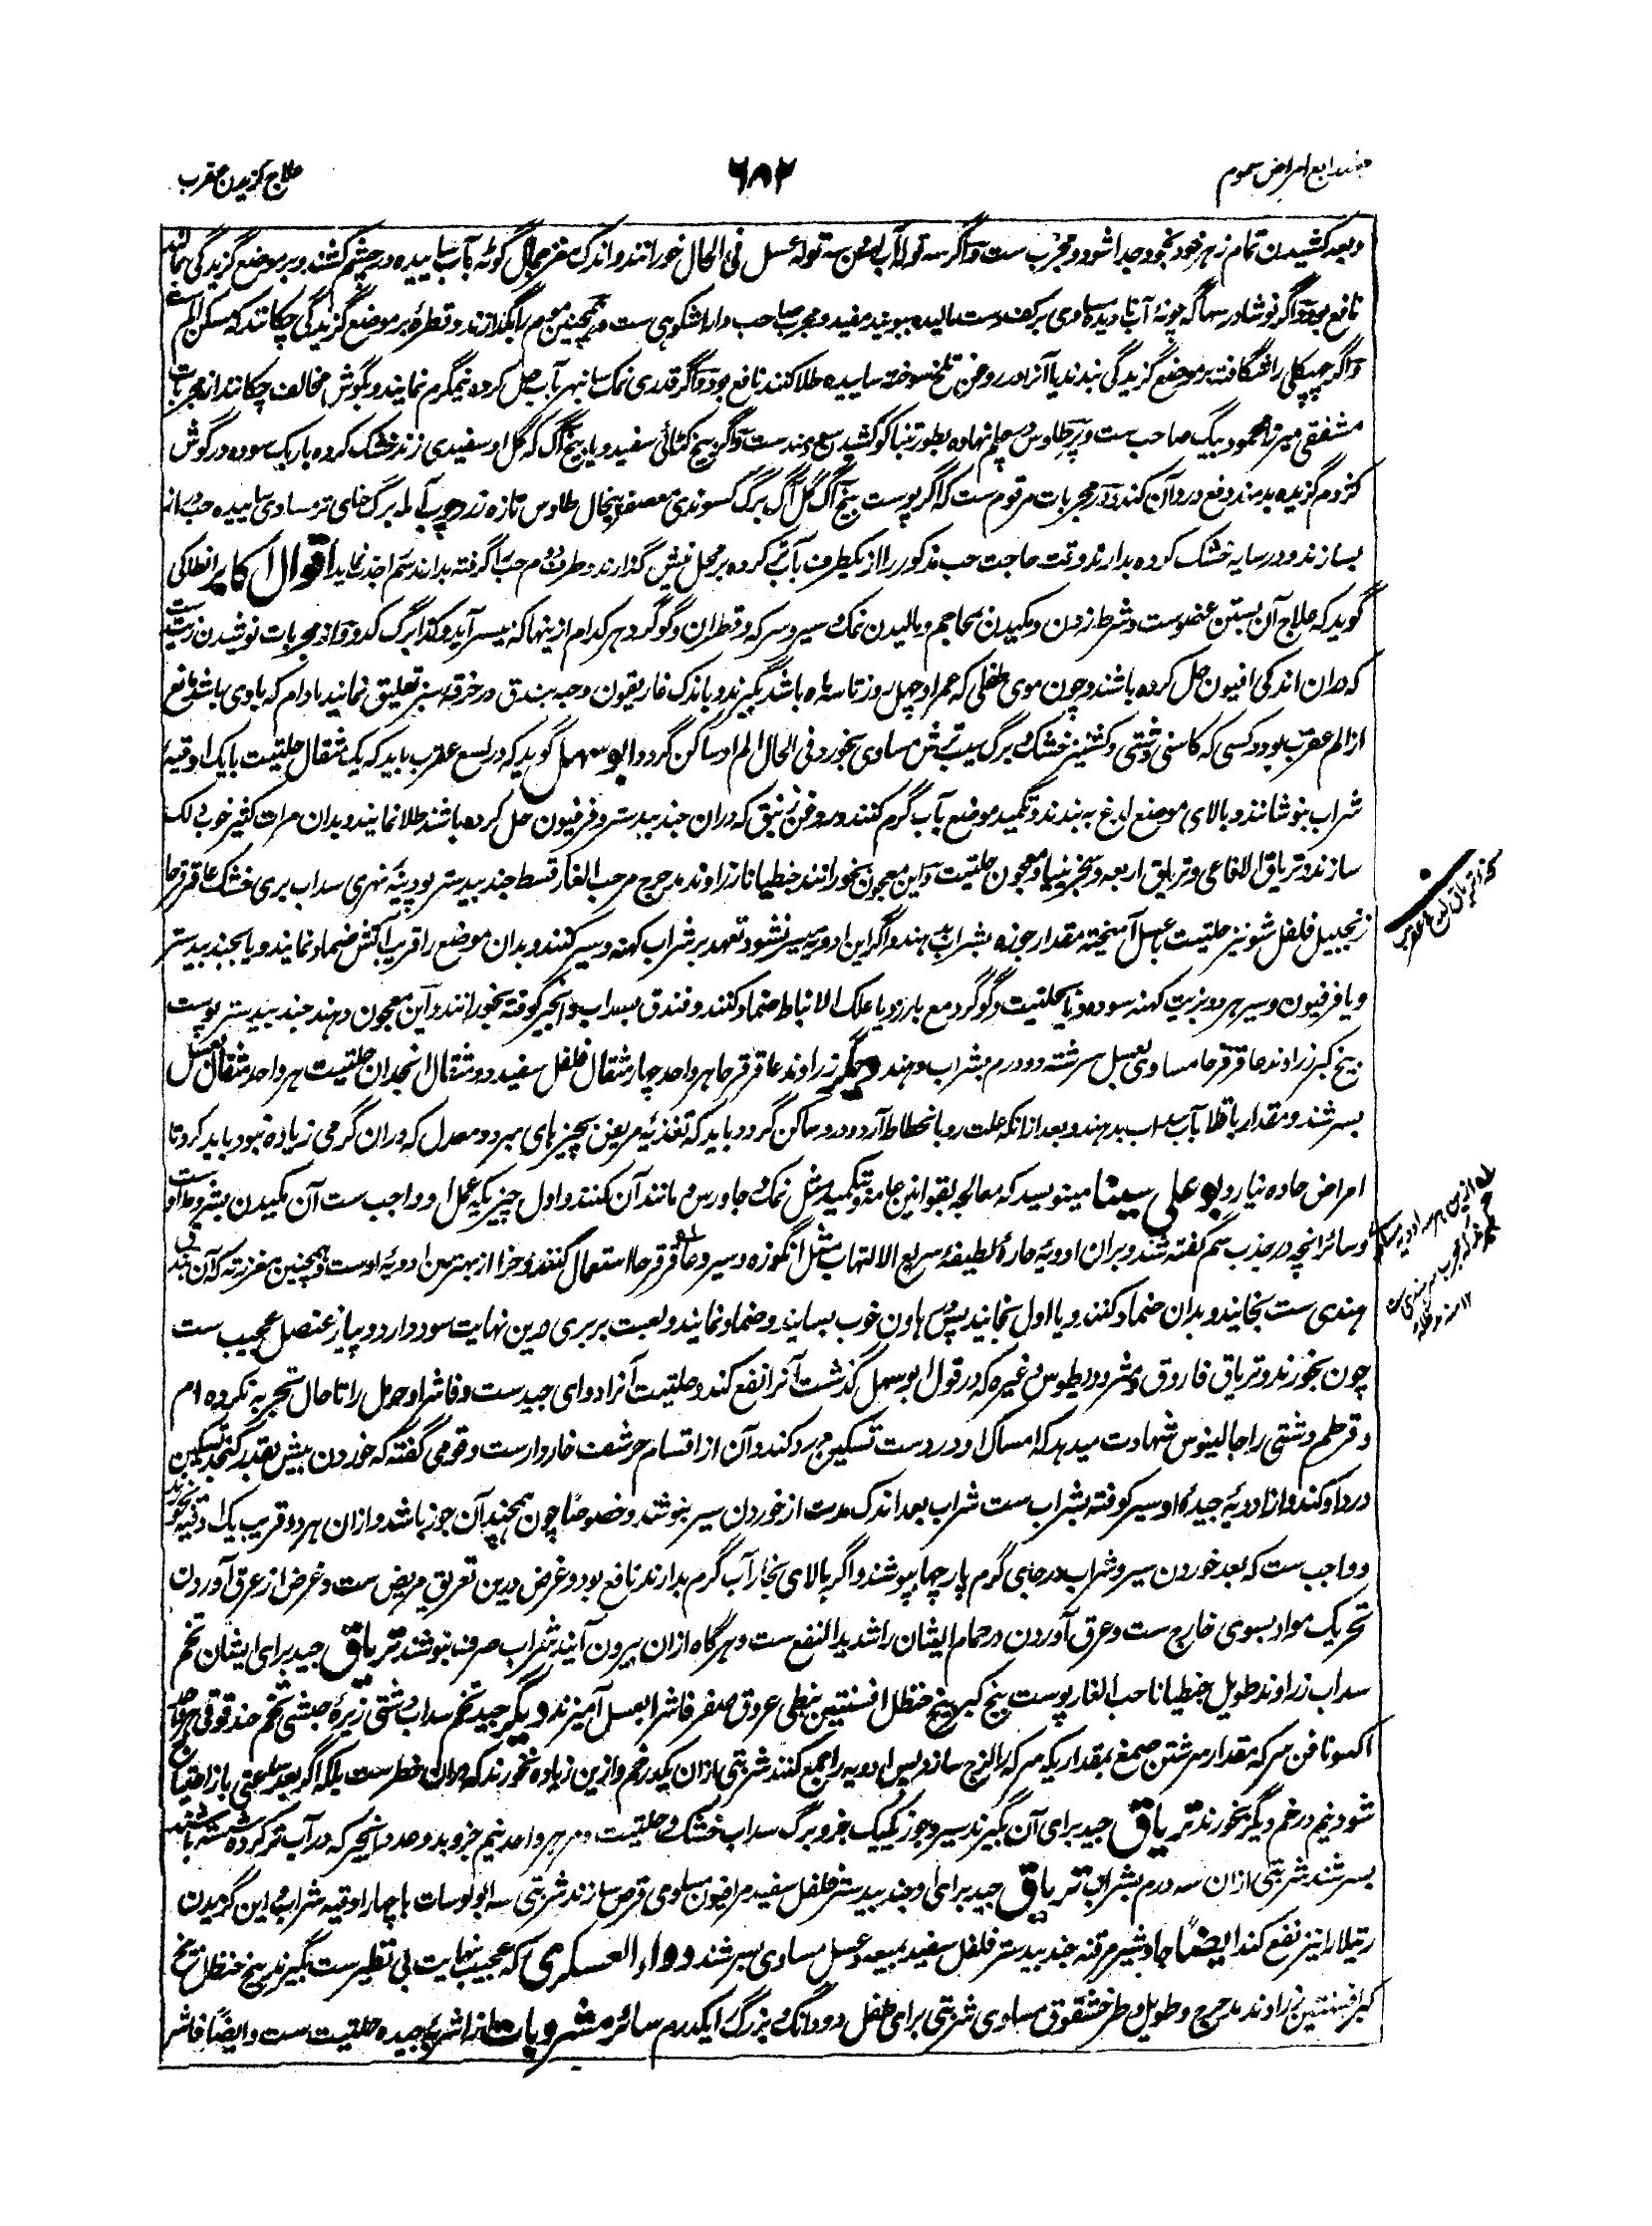 امراض سموم
۶۸۲
علاج گزیدن عقرب
و بعد کشیدن تمام زهر خود بخود جدا شود و مجرب ست و اگر سه توله آب سه توله عسل فی الحال خورانند و اندک مغز جمال گوٹه بآب ساییده در چشم کشند و بر موضع گزیدگی بمالند
نافع بود و اگر نوشادر سهاگه چونهٔ آب نادیده مساوی بر کف دست مالیده ببویند مفید و مجرب صاحب داراشکوهی ست و همچنین موم را بگدازند و قطرهٔ بر موضع گزیدگی چکانند که مسکن الم ست
و اگر چهپکلی را شگافته بر موضع گزیدگی بندند یا آنرا در روغن تلخ سوخته ساییده طلا کنند نافع بود و اگر قدری نمک سانبهر بآب حل کرده نیمگرم نمایند و بگوش مخالف چکانند از مجربات
مشفقی میرزا محمود بیگ صاحب ست و پر طاوس در چلم نهاده بطور تنباکو کشیدن سود مند ست و اگر بیخ کٹائی سفید و یا بیخ آگ که گل او سفیدی زند خشک کرده باریک سوده در گوش
کژدم گزیده بدمند دفع درد آن کند و در مجربات مرقوم ست که اگر پوست بیخ آگ گل آگ برگ کسوندی معصفر پیخال طاوس تازه زرد چوب آمله برگ حنای تر مساوی ساییده حب
بسازند و در سایه خشک کرده بدارند وقت حاجت حب مذکور را از یکطرف بآب تر کرده بر محل نیش گذارند و طرف دوم حب را گرفته بدارند سم جذب نماید اقوال اکابر انطاکی
گوید که علاج آن بستن عضو ست و شرط زدن و مکیدن بمحاجم و مالیدن نمک و سیر و سرکه و قطران و گوگرد هر کدام از ینها که میسر آید و کذا برگ کدو و از مجربات نوشیدن زیت ست
که دران اندکی افیون حل کرده باشند و چون موی طفلی که عمر او چهل روز تا سه ماه باشد بگیرند و با اندک غاریقون و حبه بندق در خرقه سبز تعلیق نمایند مادام که با وی باشد مانع
از الم عقرب بود و کسی که کاسنی دشتی و کشنیز خشک و برگ سیب ترش مساوی بخورد فی الحال الم او ساکن گردد ابو سهل گوید که در لسع عقرب باید که یک مثقال حلتیت با یک اوقیهٔ
شراب بنوشانند و بالای موضع لدغ به بندند و تکمید موضع بآب گرم کنند و روغن زنبق که دران جند بیدستر و فرفیون حل کرده باشند طلا نمایند و بدان مرات کثیر خوب دلک
سازند و تریاق الافاعی و تریاق اربعه و سنجرینیا و معجون حلتیت و این معجون بخورانند جنطیانا زراوند مدحرج مر حب الغار قسط جند بیدستر پودینهٔ نهری سداب بری خشک عاقرقرحا
زنجبیل فلفل شونیز حلتیت بعسل آمیخته مقدار جوزه بشراب بدهند و اگر این ادویه میسر نشود تعهد بر شراب کهنه و سیر کنند و بدان موضع را قریب آتش ضماد نمایند و یا بجند بیدستر
و یا فرفیون و سیر هر دو بزیت کهنه سوده و یا بحلتیت و گوگرد مع بارزد یا علک الانباط ضماد کنند و فندق بسداب و انجیر کوفته بخورانند و این معجون دهند جند بیدستر پوست
بیخ کبر زراوند عاقرقرحا مساوی بعسل سرشته دو درم بشراب دهند دیگر زراوند عاقرقرحا هر واحد چهار مثقال فلفل سفید دو مثقال انجدان حلتیت هر واحد مثقال بعسل
بسرشند و مقدار باقلا بآب سداب بدهند و بعد ازانکه علت رو بانحطاط آرد و درد ساکن گردد باید که تغذیهٔ مریض بچیزهای مبرد و معدل که دران گرمی زیاده نبود باید کرد تا
امراض حاده نیارد بو علی سینا مینویسد که معالجه بقوانین جامعه و تکمید بمثل نمک و جاورس و مانند آن کنند و اول چیزیکه عمل او واجب ست آن مکیدن بشروط او ست
و سائر انچه در جذب سم گفته شد و بران ادویهٔ حارهٔ لطیفهٔ سریع الالتهاب مثل انگوزه و سیر و عاقرقرحا استعمال کنند و حزا از بهترین ادویهٔ او ست و همچنین مغز رته که آن بندق
هندی ست بخایند و بدان ضماد کنند و یا اول بخایند پس در هاون خوب بسایند و ضماد نمایند و لعبت بربری درین نهایت سود دارد و پیاز عنصل عجیب ست
چون بخورند و تریاق فاروق و مثرودیطوس و غیره که در قول ابو سهل گذشت آنرا نفع کند و حلتیت آنرا دوای جید ست و فاشرا و حرمل را تا حال تجربه نکرده ام
و قرطم دشتی را جالینوس شهادت میدهد که امساک او در دست تسکین درد کند و آن از اقسام حرشف خاردار ست و قومی گفته که خوردن بیش بقدر کنجد تسکین
درد او کند و از ادویهٔ جیدهٔ او سیر کوفته بشراب ست شراب بعد اندک مدت از خوردن سیر بنوشند و خصوصًا چون همچند آن جوز باشد و ازان هر دو قریب یک اوقیه بخورند
و واجب ست که بعد خوردن سیر و شراب در جای گرم پارچها بپوشند و اگر بالای بخار آب گرم بدارند نافع بود و غرض درین تعریق مریض ست و غرض از عرق آوردن
تحریک مواد بسوی خارج ست و عرق آوردن در حمام ایشان را شدید النفع ست و هرگاه ازان بیرون آیند شراب صرف بنوشند تریاق جید برای ایشان تخم
سداب زراوند طویل جنطیانا حب الغار پوست بیخ کبر بیخ حنظل افسنتین نبطی عروق صفر فاشرا بعسل آمیزند دیگر جید تخم سداب دشتی زیرهٔ حبشی تخم حندقوقی هر واحد
اکسونافن سرکه مقدار سرشتن صمغ بمقداریکه سرکه را لزج سازد پس ادویه را جمع کنند شربتی ازان یکدرخم و ازین زیاده نخورند که دران خطر ست بلکه اگر بعد ساعتی باز احتیاج
شود نیم درخم دیگر بخورند تریاق جید برای آن بگیرند سیر و جوز یک یک جزو برگ سداب خشک و حلتیت و مر هر واحد نیم جزو بدو عدد انجیر که در آب تر کرده شسته باشند
بسرشند شربتی ازان سه درم بشراب تریاق جید برای او جند بیدستر فلفل سفید مر افیون مساوی قرص سازند شربتی سه ابولوسات با چهار اوقیه شراب و این گزیدن
رتیلا را نیز نفع کند ایضًا جاوشیر مر قنه جند بیدستر فلفل سفید بمیعه و عسل مساوی بسرشند دواء العسکری که عجیب بنهایت بی نظیر ست بگیرند بیخ حنظل بیخ
کبر افسنتین زراوند مدحرج و طویل و طرخشقوق مساوی شربتی برای طفل دو دانگ و بزرگ را یکدرم سائر مشروبات از اشربهٔ جیده حلتیت ست و ایضًا فاشرا